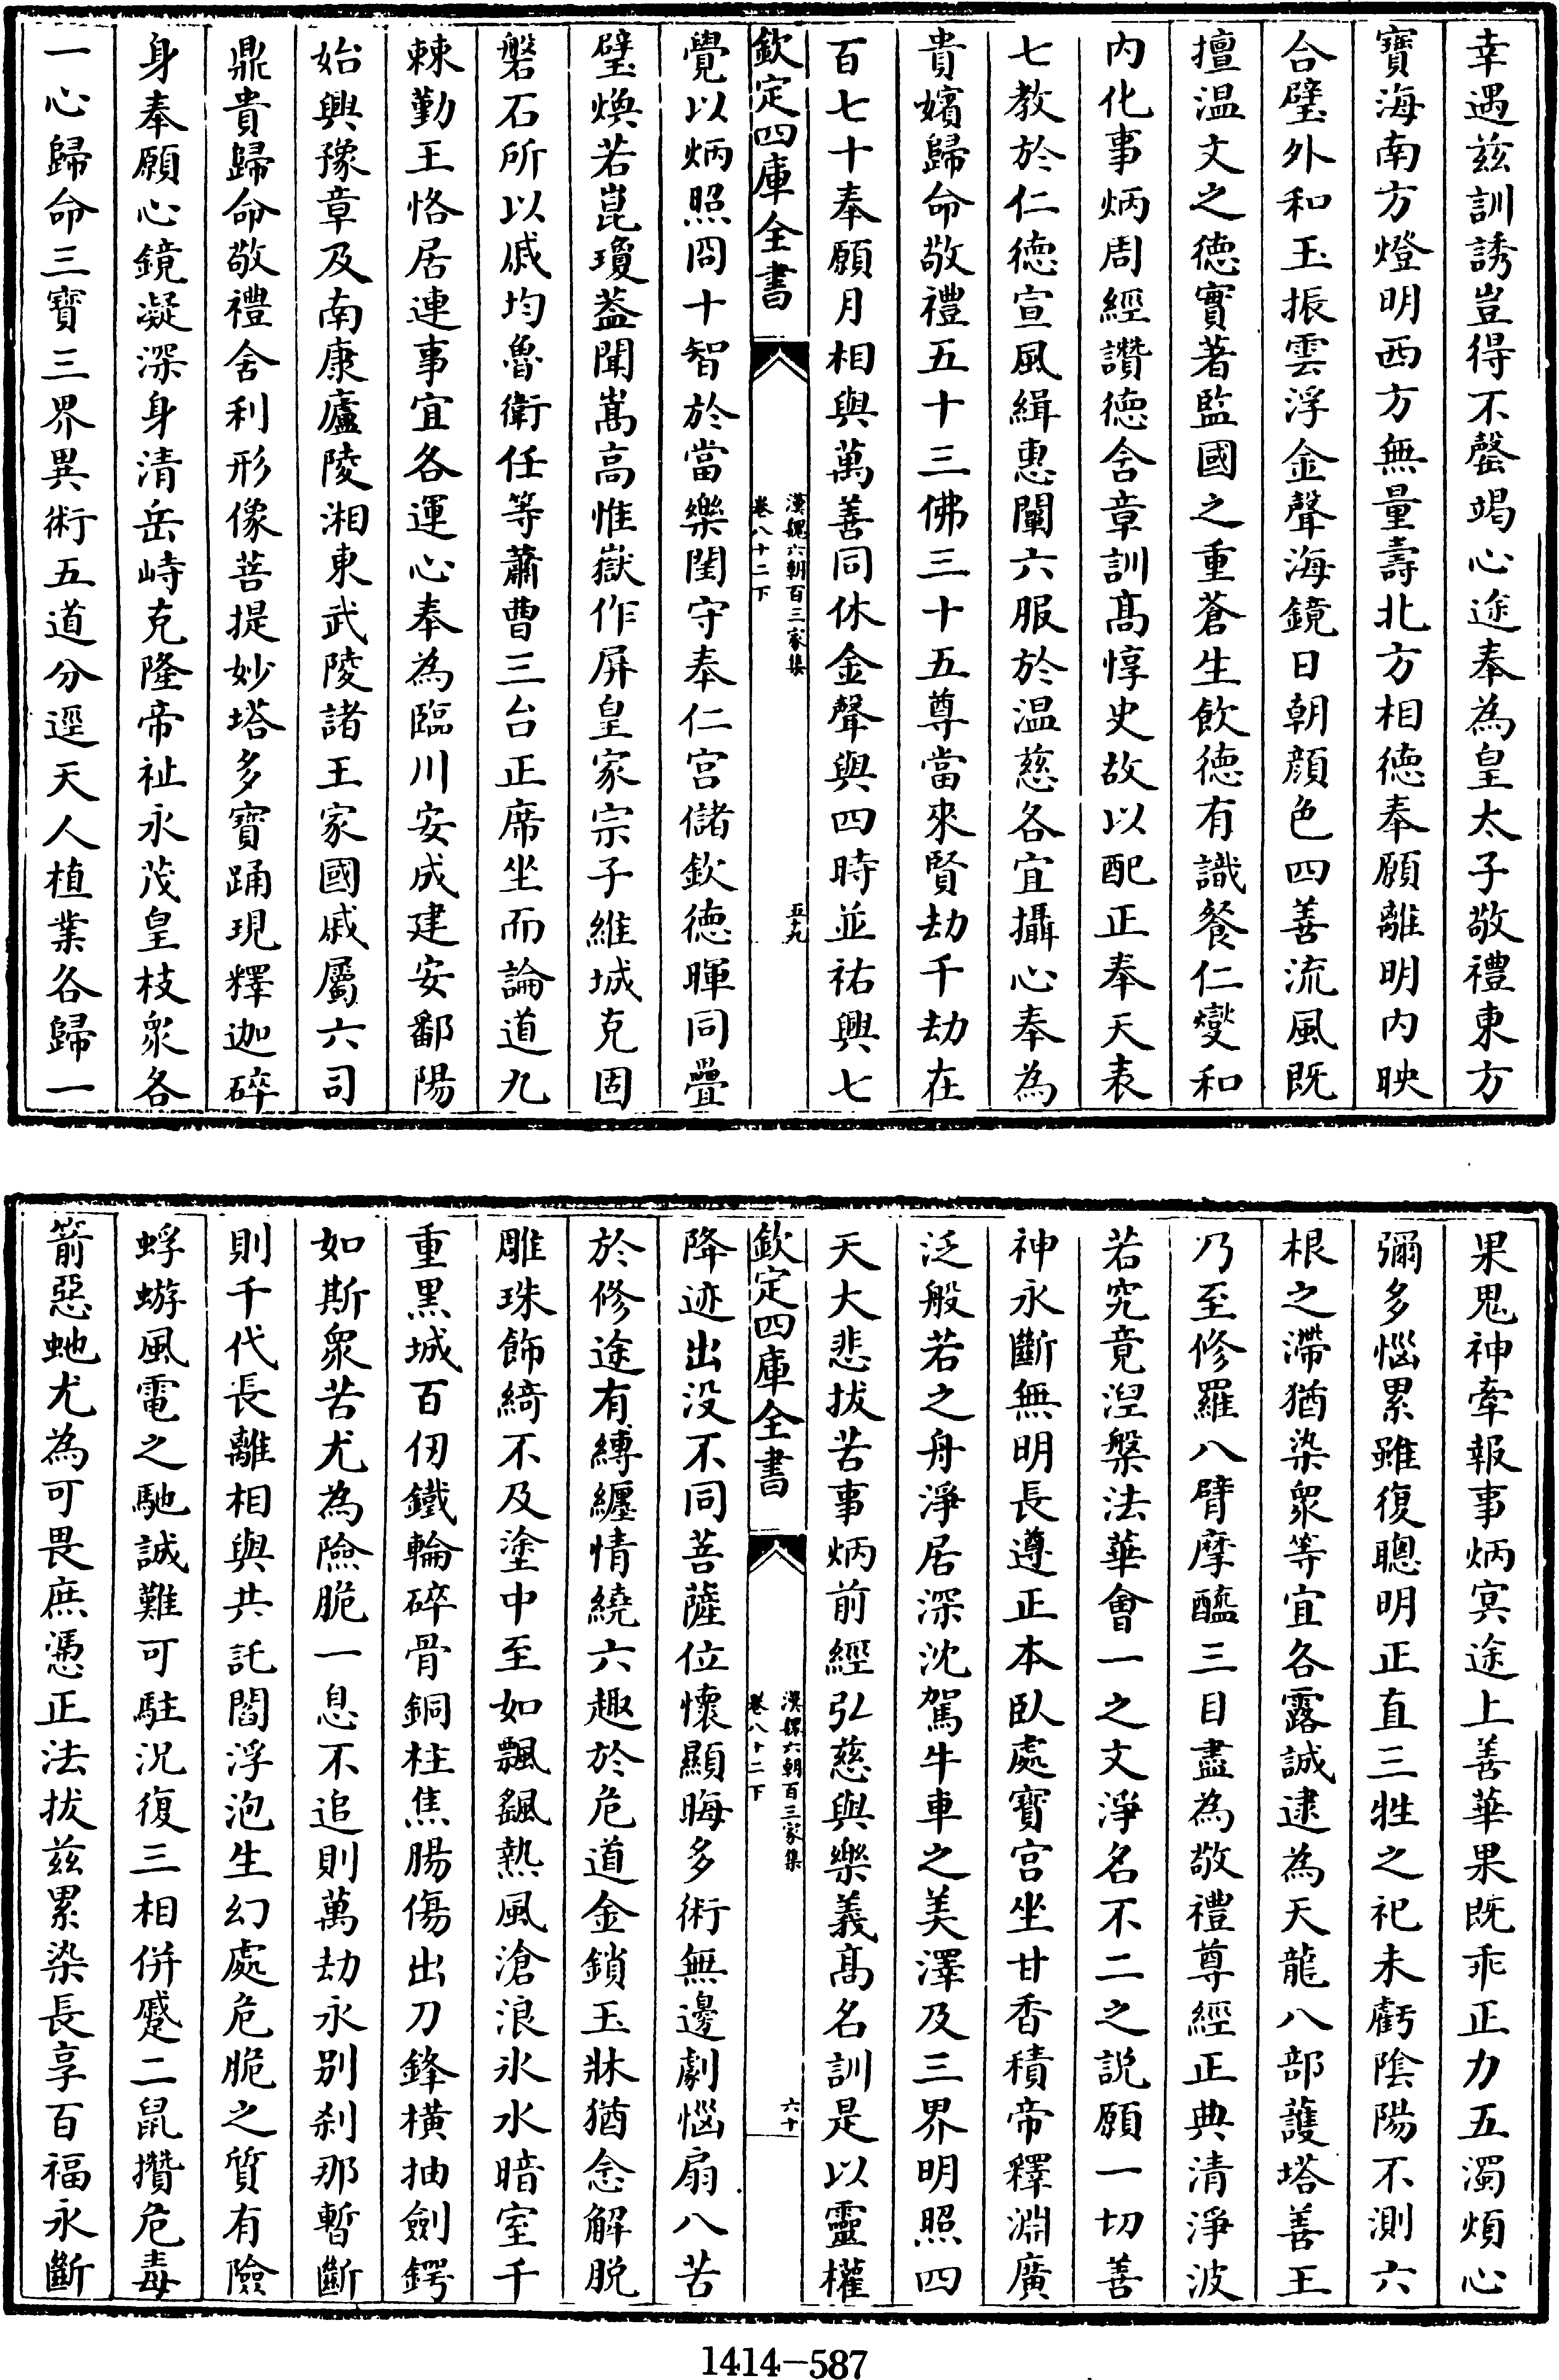 幸遇茲訓誘豈得不罄竭心途奉為皇太子敬禮東方
寶海南方燈明西方無量壽北方相徳奉願離明内映
合璧外和玉振雲浮金聲海鏡日朝顔色四善流風既
擅温文之徳實著監國之重蒼生飲徳有識餐仁爕和
内化事炳周經讚徳含章訓髙惇史故以配正奉天表
七教於仁徳宣風緝惠闡六服於温慈各宜攝心奉為
貴嬪歸命敬禮五十三佛三十五尊當來賢劫千劫在
百七十奉願月相與萬善同休金聲與四時並祐興七
欽定四庫全書
漢魏六朝百三家集
卷八十二下
五九
覺以炳照罔十智於當樂闈守奉仁宫儲欽徳暉同疊
璧煥若崑瓊葢聞嵩高惟嶽作屏皇家宗子維城克固
磐石所以戚均魯衛任等蕭曹三台正席坐而論道九
棘勤王恪居連事宜各運心奉為臨川安成建安鄱陽
始興豫章及南康廬陵湘東武陵諸王家國戚屬六司
鼎貴歸命敬禮舍利形像菩提妙塔多寶踊現釋迦碎
身奉願心鏡凝深身清岳峙克隆帝祉永茂皇枝衆各
一心歸命三寶三界異術五道分逕天人植業各歸一
果鬼神牽報事炳冥途上善華果既乖正力五濁煩心
彌多惱累雖復聰明正直三牲之祀未虧隂陽不測六
根之滯猶染衆等宜各露誠逮為天龍八部護塔善王
乃至修羅八臂摩醯三目盡為敬禮尊經正典清淨波
若究竟湼槃法華會一之文淨名不二之説願一切善
神永斷無明長遵正本臥處寶宫坐甘香積帝釋淵廣
泛般若之舟淨居深沈駕牛車之美澤及三界明照四
天大悲拔苦事炳前經弘慈與樂義髙名訓是以靈權
欽定四庫全書
漢魏六朝百三家集
卷八十二下
六十
降迹出没不同菩薩位懷顯晦多術無邊劇惱扇八苦
於修途有縛纒情繞六趣於危道金鎖玉牀猶念解脱
雕珠飾綺不及塗中至如飄颻熱風滄浪氷水暗室千
重黒城百仞鐵輪碎骨銅柱焦腸傷出刀鋒横抽劍鍔
如斯衆苦尤為險脆一息不追則萬劫永别刹那暫斷
則千代長離相與共託閻浮泡生幻處危脆之質有險
蜉蝣風電之馳誠難可駐況復三相併蹙二鼠攢危毒
箭惡虵尤為可畏庶憑正法拔兹累染長享百福永斷
1414-587